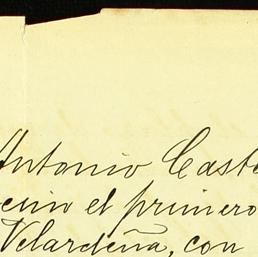 Antonio Caste
ecino el primero
Velardeña, con